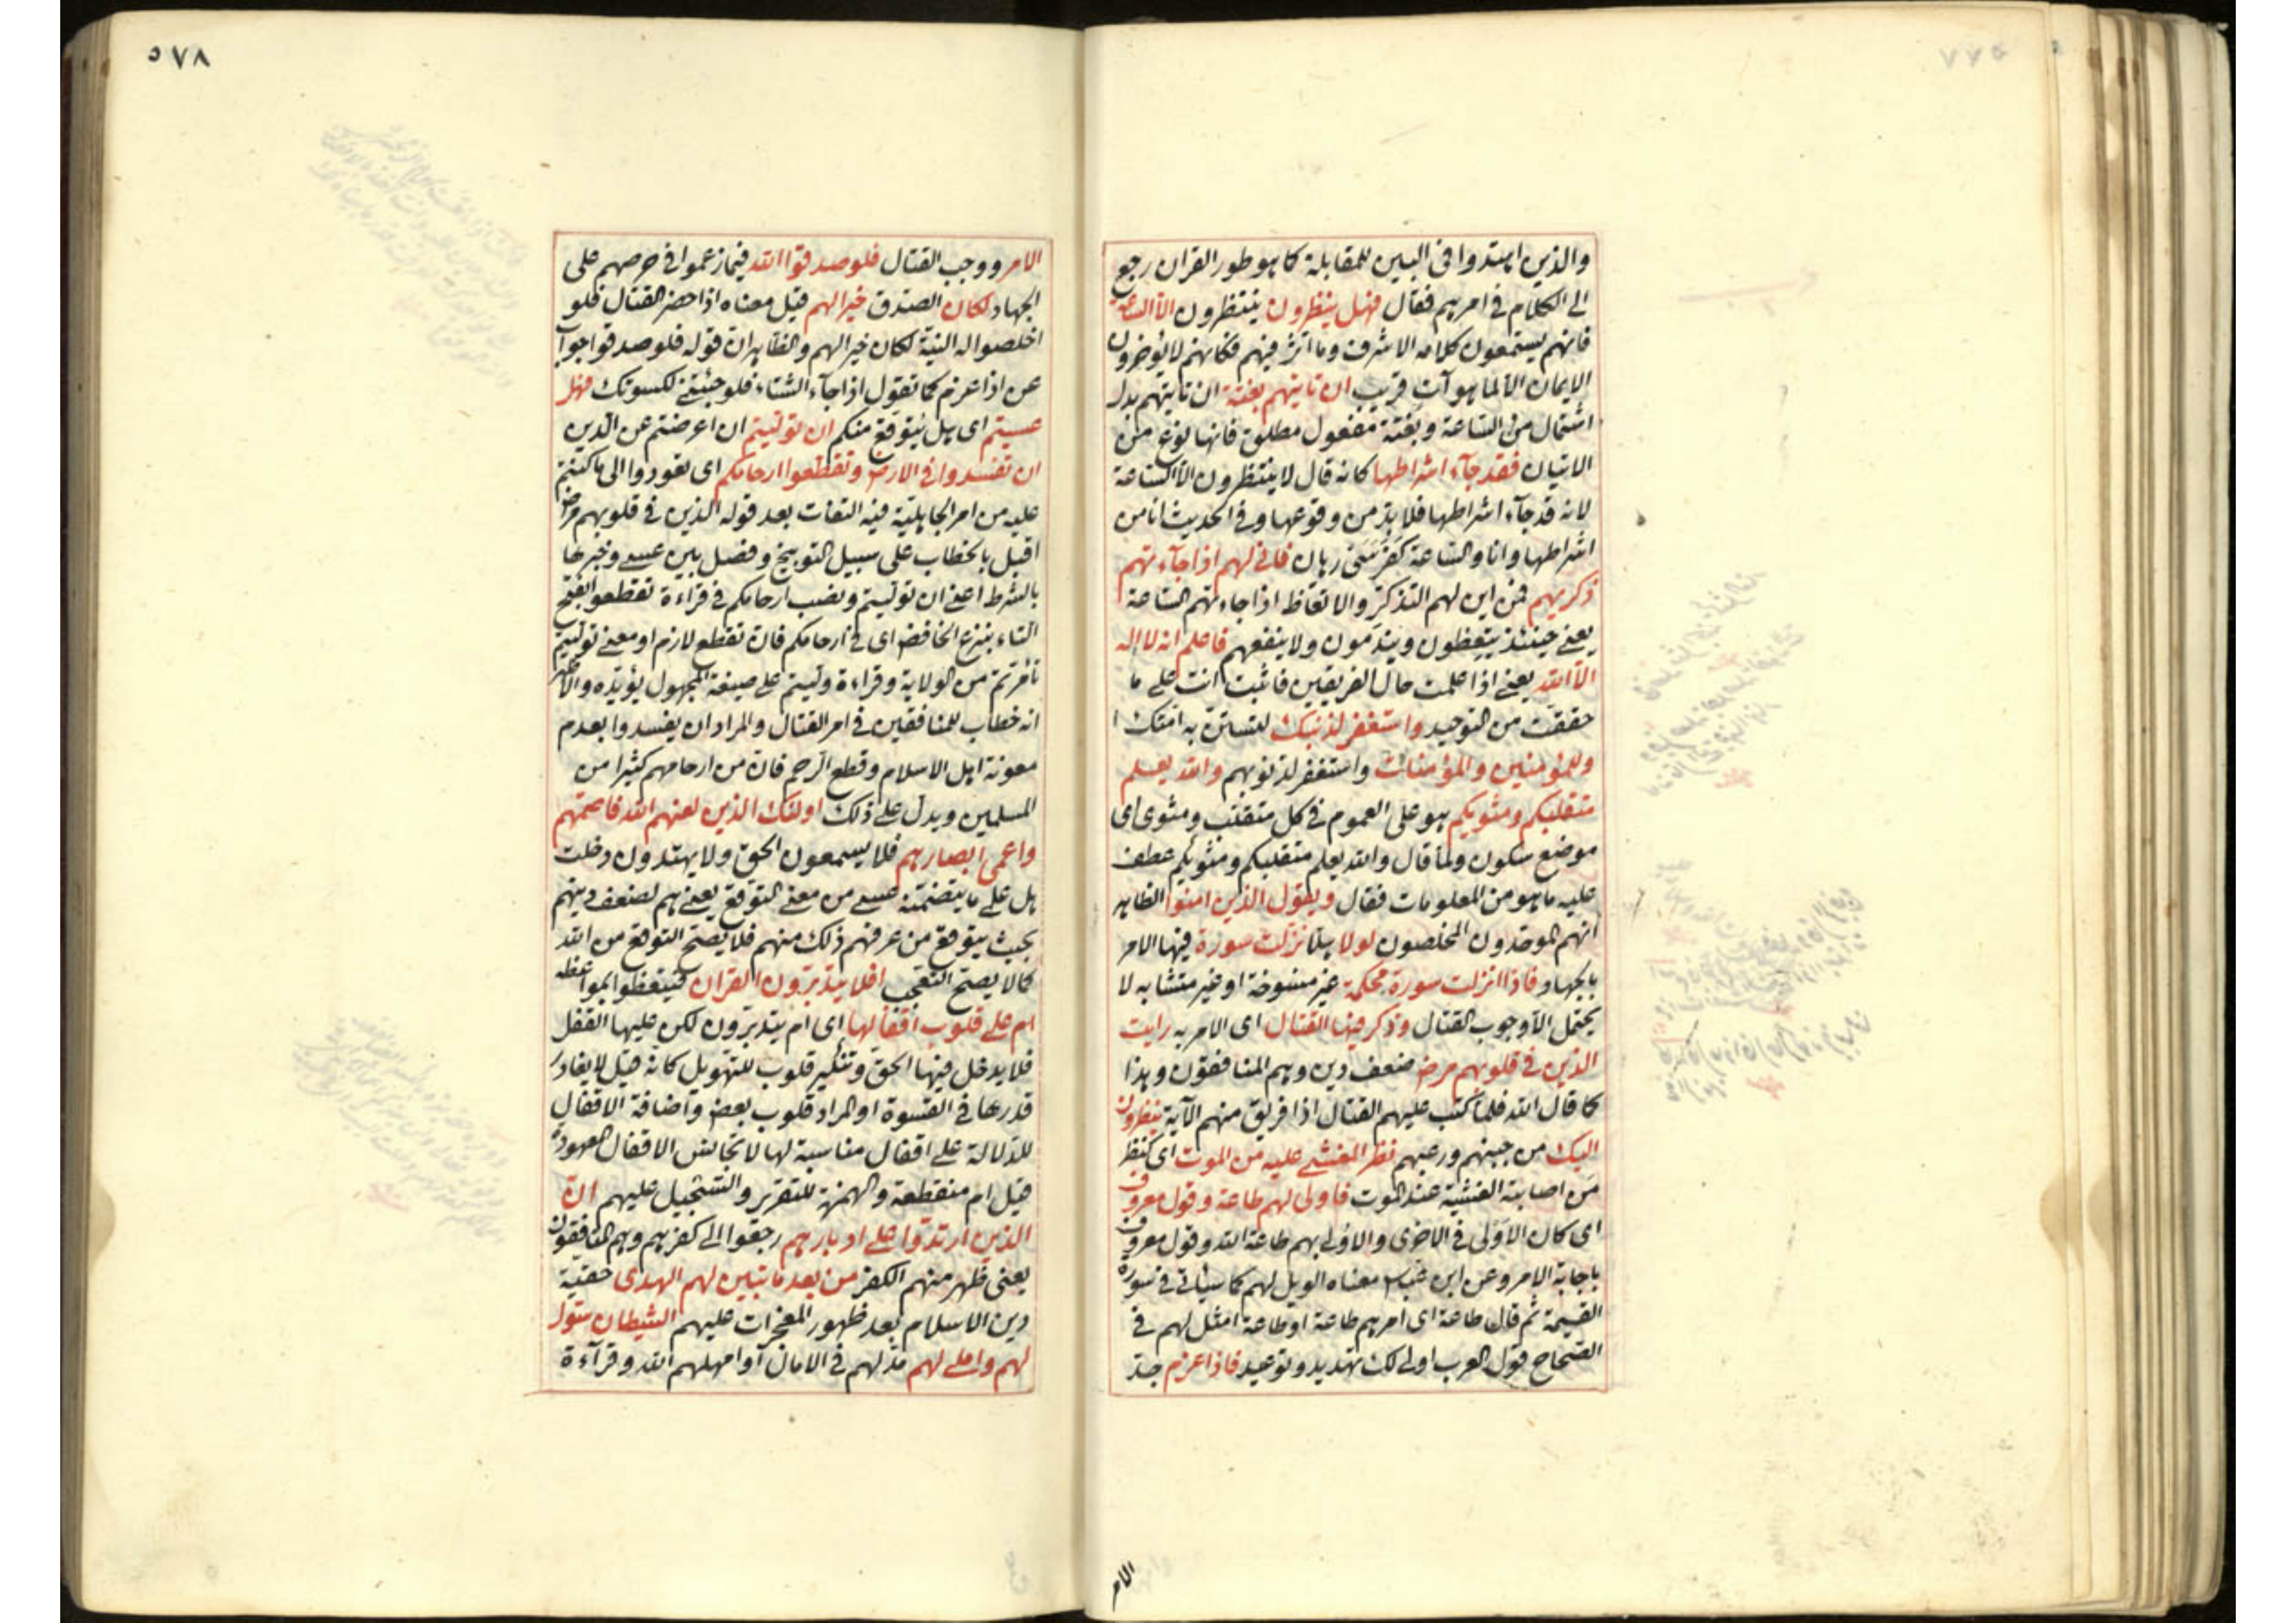 والذين اهتدوا في البين للمقابلة كما هو طور القران رجع
الى الكلام في امرهم فقال فهل ينظرون ينتظرون الا الساعة
فانهم يستمعون كلامه الاشرف وما اثر فيهم فكانهم لا يؤخرون
الايمان الا لما هو آت قريب ان تاتيهم بغتة ان تاتيهم بدل
اشتمال من الساعة وبغتة مفعول مطلق فانها نوع من
الاتيان فقد جآء اشراطها كانه قال لا ينتظرون الا الساعة
لانه قد جآء اشراطها فلا بد من وقوعها وفي الحديث انا من
اشراطها وانا والساعة كفرسى رهان فانى لهم اذا جآءتهم
ذكريهم فمن اين لهم التذكر والاتعاظ اذا جاءتهم الساعة
يعني حينئذ يتعظون ويندمون ولا ينفعهم فاعلم انه لا اله
الا الله يعني اذا علمت حال الفريقين فاثبت انت على ما
حققت من التوحيد واستغفر لذنبك لتستن به امتك
وللمؤمنين والمؤمنات واستغفر لذنوبهم والله يعلم
متقلبكم ومثويكم هو على العموم في كل متقلب ومثوى اى
موضع سكون ولما قال والله يعلم متقلبكم ومثويكم عطف
عليه ما هو من المعلومات فقال ويقول الذين امنوا الظاهر
انهم الموحدون المخلصون لولا هلا نزلت سورة فيها الامر
بالجهاد فاذا انزلت سورة محكمة غير منسوخة او غير متشابه لا
يحتمل الا وجوب القتال وذكر فيها القتال اى الامر به رايت
الذين في قلوبهم مرض ضعف دين وهم المنافقون وهذا
كما قال الله فلما كتب عليهم القتال اذا فريق منهم الآية ينظرون
اليك من جبنهم ورعبهم نظر المغشي عليه من الموت اى كنظر
من اصابته الغشية عند الموت فاولى لهم طاعة وقول معروف
اى كان الاولى في الاخرى والاولى بهم طاعة الله وقول معروف
باجابة الامر وعن ابن عباس معناه الويل لهم كما سياتي في سورة
القيمة ثم قال طاعة اى امرهم طاعة او طاعة امثل لهم في
الصحاح قول العرب اولى لك تهديد وتوعيد فاذا عزم جد
الامر
٥٧٨
الامر ووجب القتال فلو صدقوا الله فيما زعموا في حرصهم على
الجهاد لكان الصدق خيرا لهم قيل معناه اذا حضر القتال فلو
اخلصوا له النية لكان خيرا لهم والظاهر ان قوله فلو صدقوا جواب
عن اذا عزم كما تقول اذا جآء الشتاء فلو جئتني لكسوتك فهل
عسيتم اى هل يتوقع منكم ان توليتم ان اعرضتم عن الدين
ان تفسدوا في الارض وتقطعوا ارحامكم اى تعودوا الى ما كنتم
عليه من امر الجاهلية فيه التفات بعد قوله الذين في قلوبهم مرض
اقبل بالخطاب على سبيل التوبيخ وفصل بين عسى وخبرها
بالشرط اعني ان توليتم ونصب ارحامكم في قراءة تقطعوا بفتح
التاء بنزع الخافض اى في ارحامكم فان تقطع لازم او معنى توليتم
تامرتم من الولاية وقراءة وليتم على صيغة المجهول يؤيده والاظهر
انه خطاب للمنافقين في امر القتال والمراد ان يفسدوا بعدم
معونة اهل الاسلام وقطع الرحم فان من ارحامهم كثيرا من
المسلمين ويدل على ذلك اولئك الذين لعنهم الله فاصمهم
واعمى ابصارهم فلا يسمعون الحق ولا يهتدون دخلت
هل على ما يتضمنه عسى من معنى التوقع يعني هم لضعف دينهم
بحيث يتوقع من عرفهم ذلك منهم فلا يصح التوقع من الله
كما لا يصح التعجب افلا يتدبرون القران فيتعظوا بمواعظه
ام على قلوب اقفالها اى ام يتدبرون لكن عليها القفل
فلا يدخل فيها الحق وتنكير قلوب للتهويل كانه قيل لا يقادر
قدرها في القسوة او المراد قلوب بعض واضافة الاقفال
للدلالة على اقفال مناسبة لها لا تجانس الاقفال المعهودة
قيل ام منقطعة والهمزة للتقرير والتسجيل عليهم ان
الذين ارتدوا على ادبارهم رجعوا الى كفرهم وهم المنافقون
يعنى ظهر منهم الكفر من بعد ما تبين لهم الهدى حقية
دين الاسلام بعد ظهور المعجزات عليهم الشيطان سول
لهم واملى لهم مد لهم في الامان او امهلهم الله وقرآءة